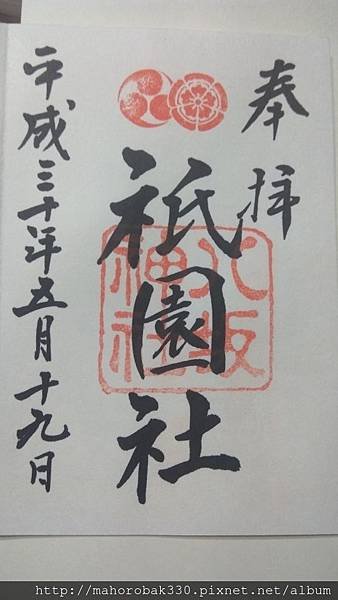 奉拝
祇園社
八坂神社
平成三十年五月十九日
http://mahorobak330.pixnet.net/album